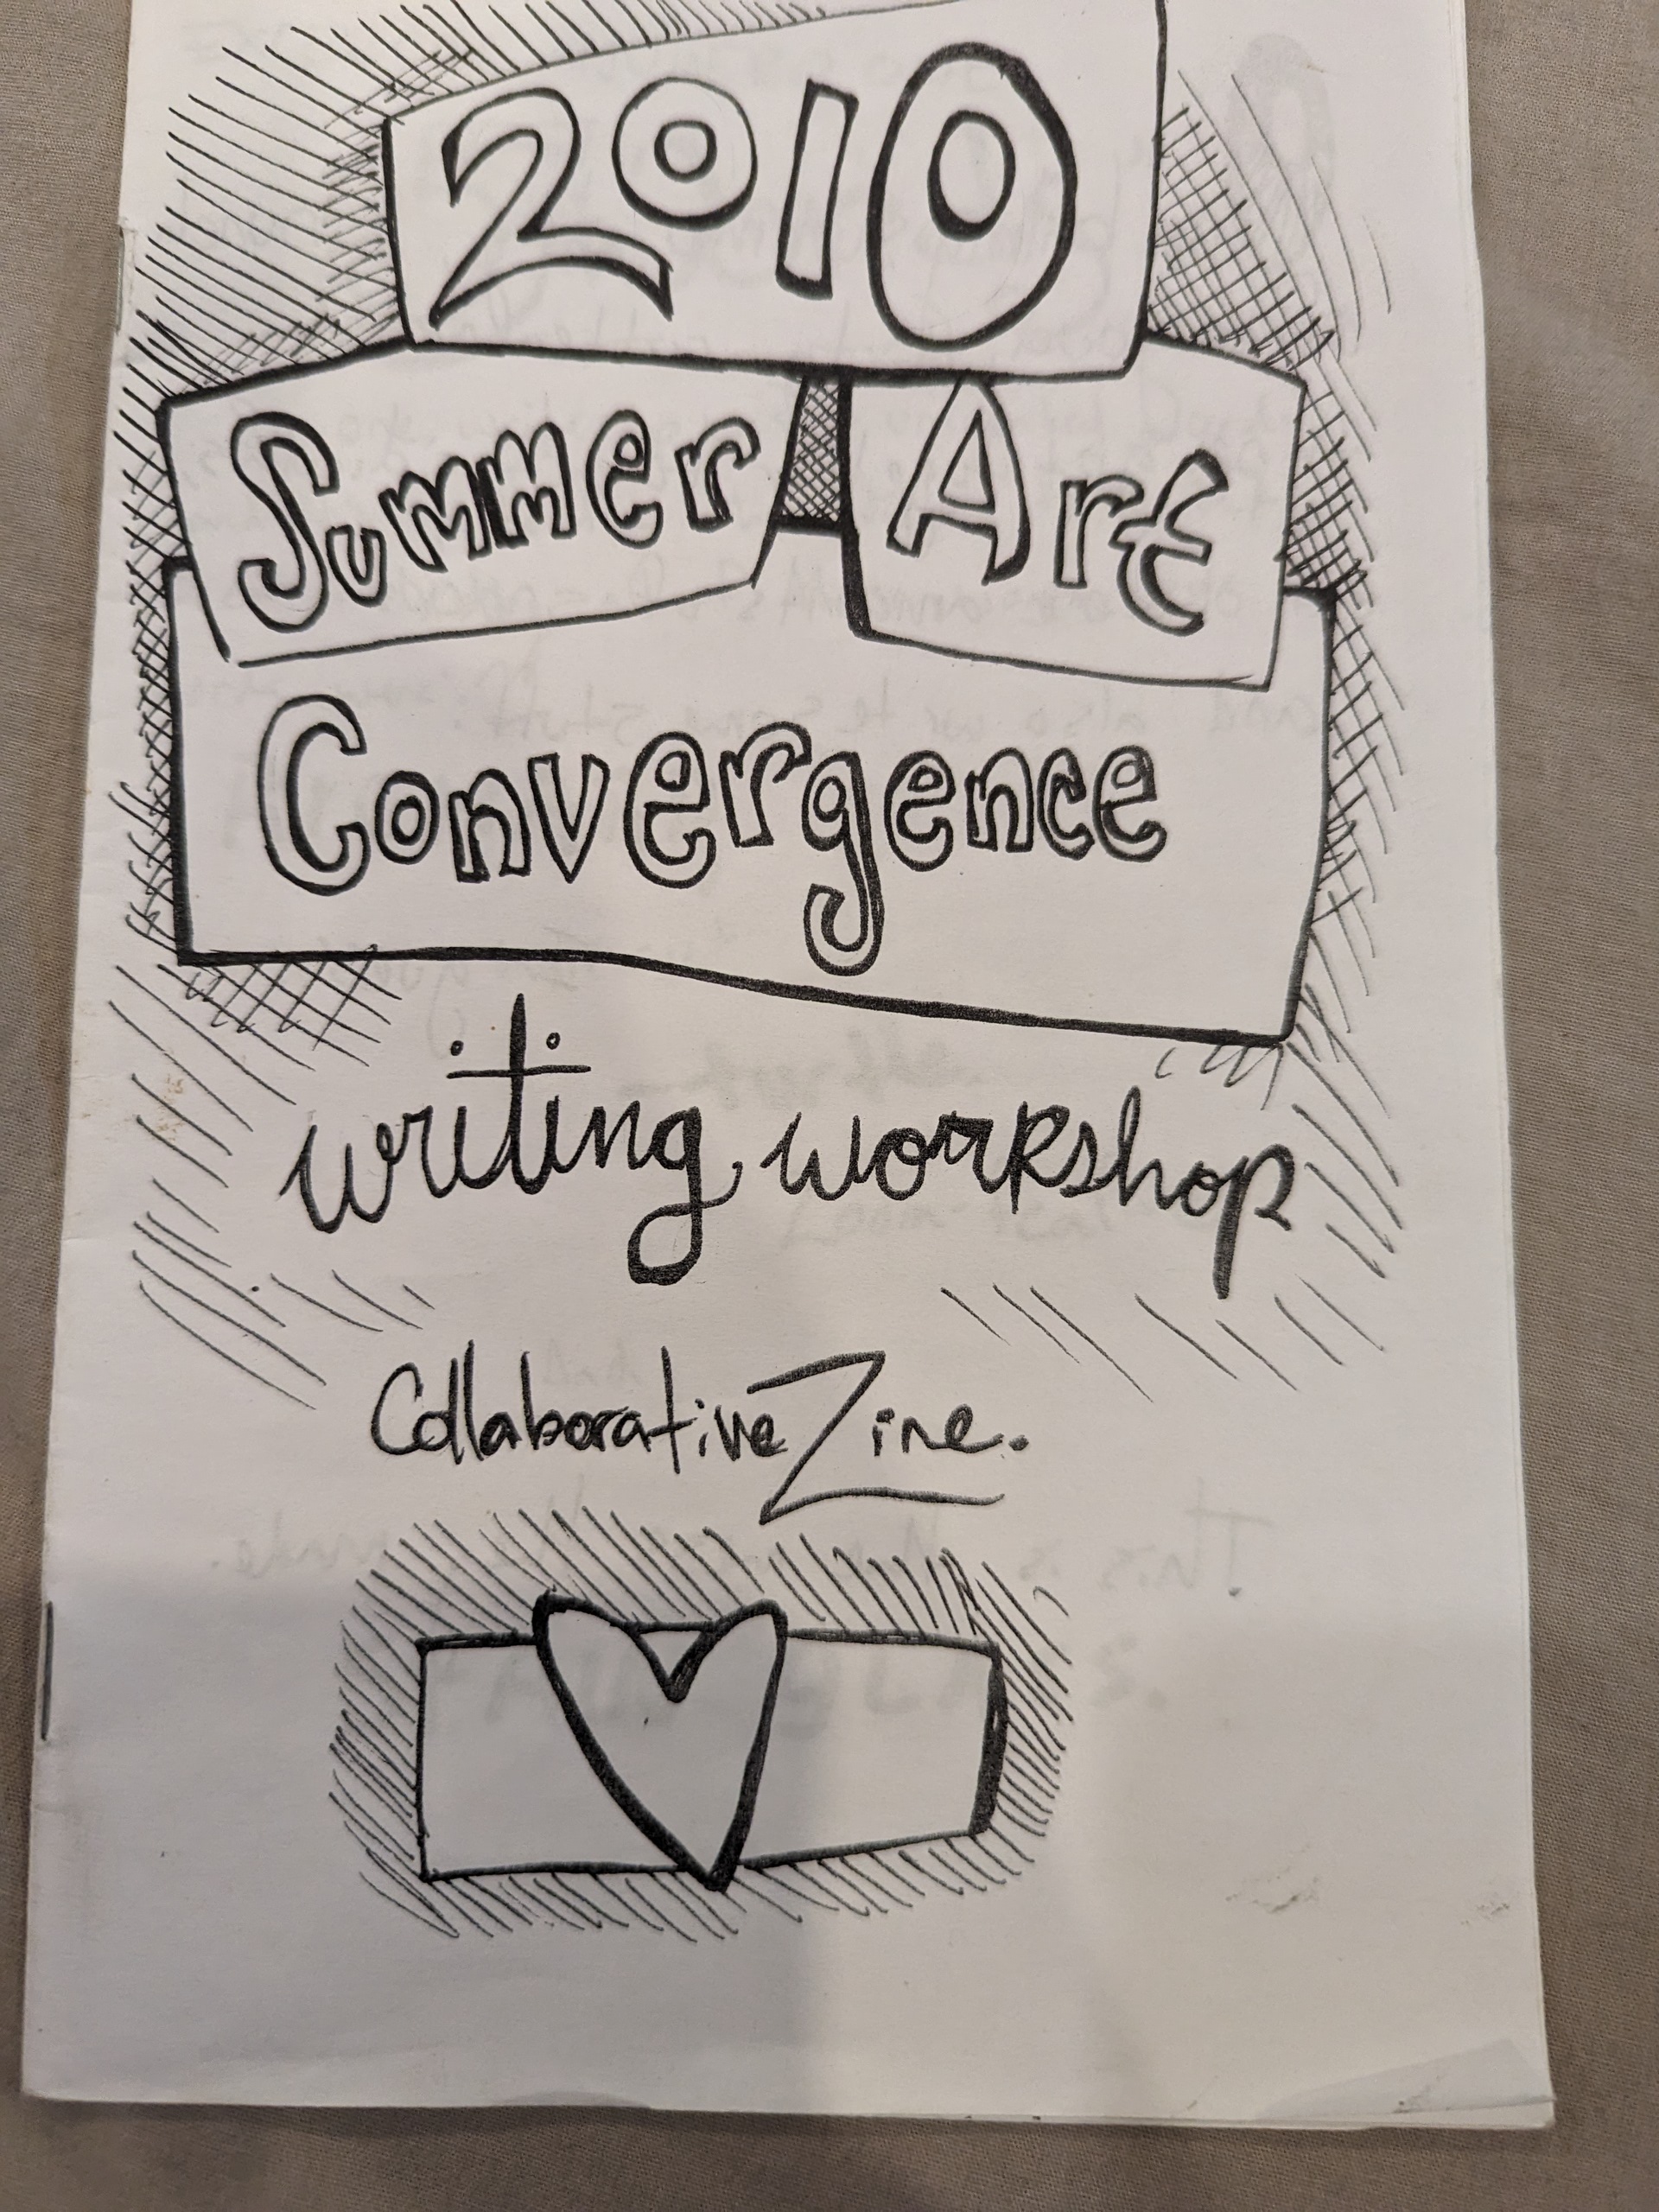 2010
Summer Art
Convergence
writing workshop
Collaborative Zine.